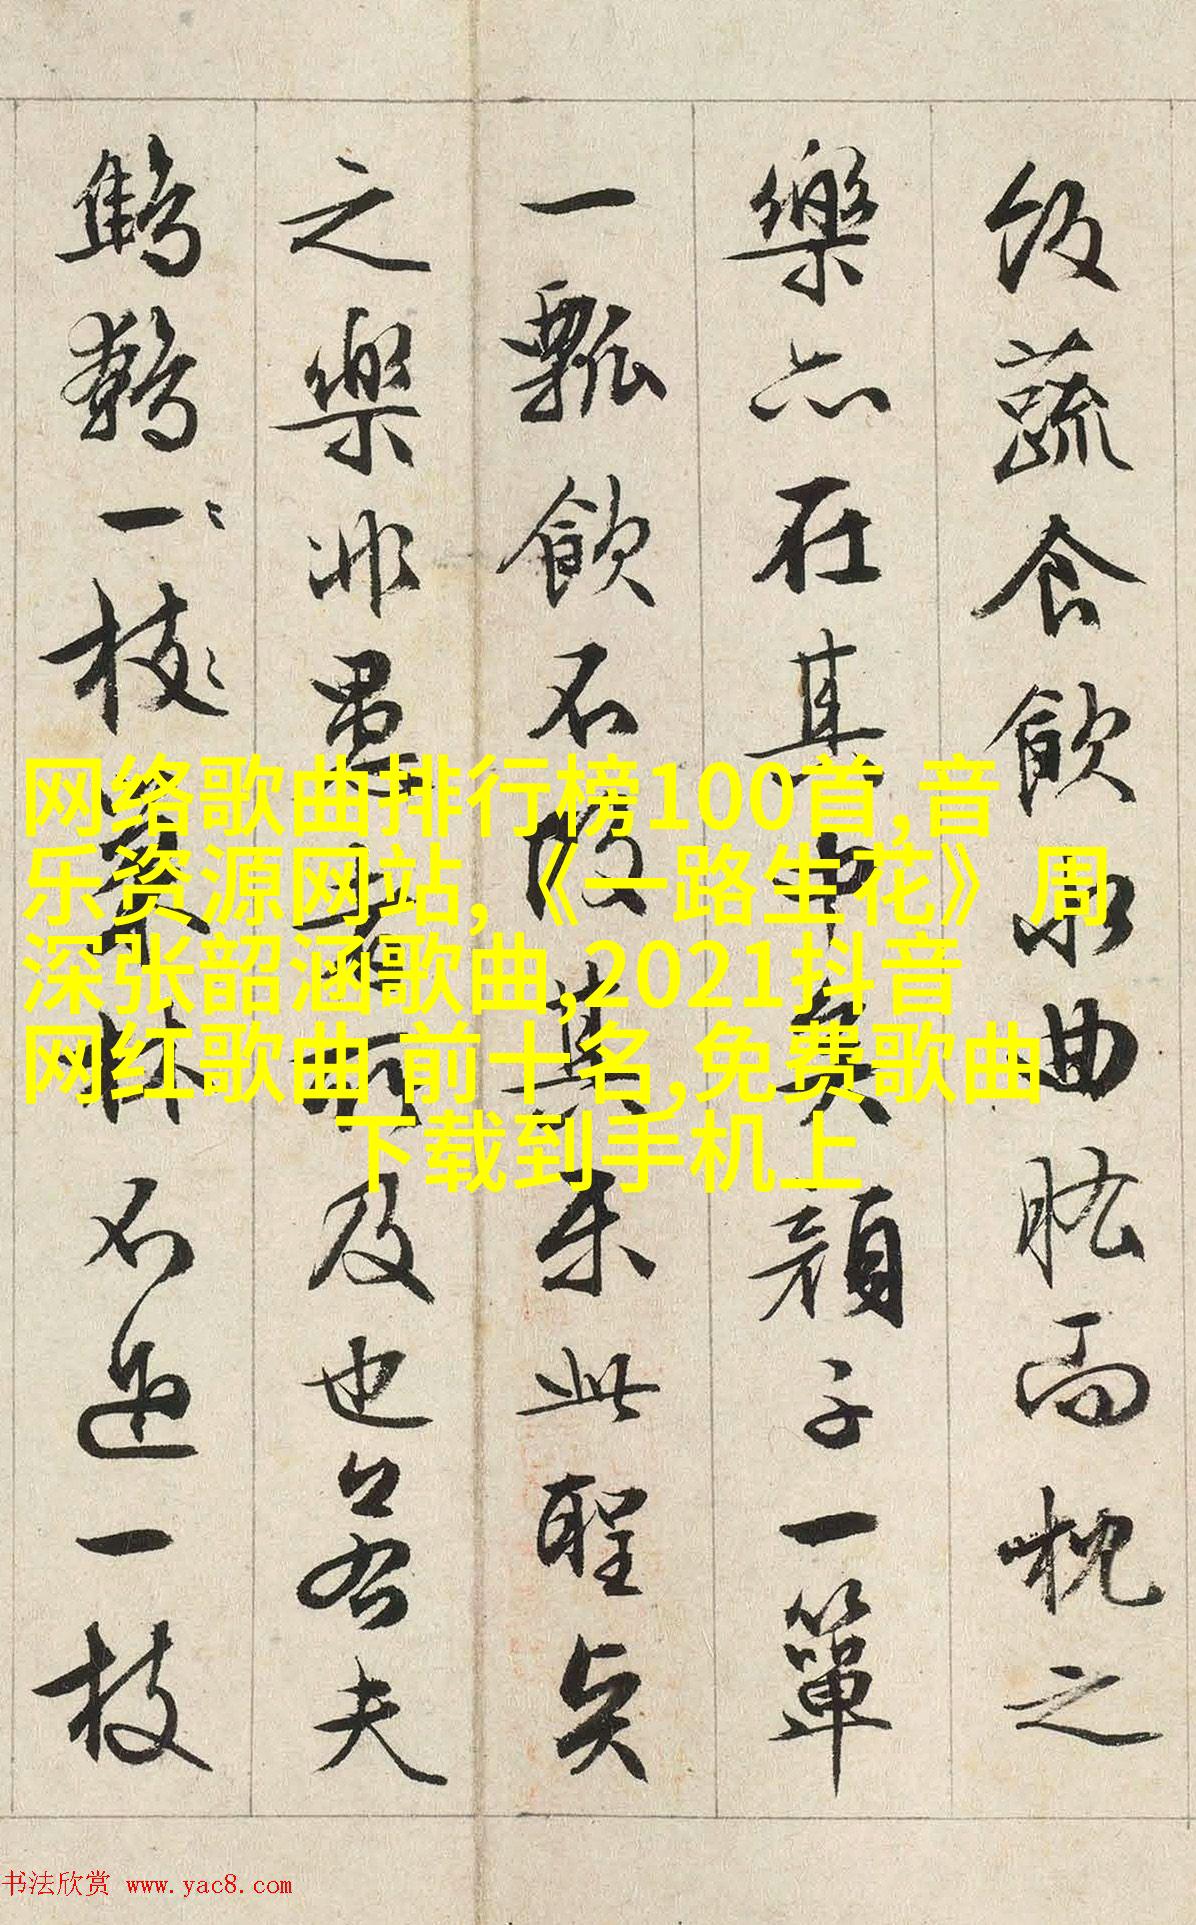 飯蔬食飲水曲肱而枕之
樂亦在其中矣顏子一簞
一瓢飲不改其乐此聖賢
之樂非愚者所及也若夫
鷦鷯一枝巢林不過一枝
网络歌曲排行榜100首,音
乐资源网站,《一路生花》周
深张韶涵歌曲,2021抖音
网红歌曲 前十名,免费歌曲
下载到手机上
书法欣赏 www.yac8.com